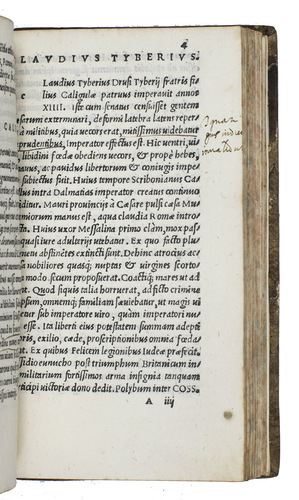 4
LAVDIVS TYBERIVS.
Laudius Tyberius Drusi Tyberij fratris fi
c lius Caligulæ patruus imperauit annos
XIIII. Iste cum senatus censuisset gentem
sarum exterminari, deformi latebra latens reper
à militibus, quia uecors erat, mitissimus uidebatur
prudentibus, imperator effectus est. Hic uentri, ui
libidini fœdæ obediens uecors, & propè hebes,
nauus, ac pauidus libertorum & coniugis impe
subiectus fuit. Huius tempore Scribonianus Ca
lus intra Dalmatias imperator creatus continuo
ditur. Mauri prouincijs à Cæsare pulsi cæsa Mu
miorum manus est, aqua claudia Romæ intro
ta. Huius uxor Messalina primo clàm, mox pas
quasi iure adulterijs utebatur. Ex quo facto plu
metu abstinētes extincti sunt. Dehinc atrocius acce
sa nobiliores quasq; nuptas & uirgines scorto
modo secum proposuerat. Coactiq; mares ut ad
ent. Quod siquis talia horruerat, adficto crimine
ipsum, omnemq; familiam sæuiebatur, ut magis ui
tur sub imperatore uiro, quàm imperatori nu
esse. Ita liberti eius potestatem summam adepti
pris, exilio, cæde, proscriptionibus omnia fœda
t. Ex quibus Felicem legionibus Iudeæ præfecit.
sidio eunucho post triumphum Britannicum in
militarium fortissimos arma insignia tanquam
ticipi uictoriæ dono dedit. Polybum inter COSS.
A iiij